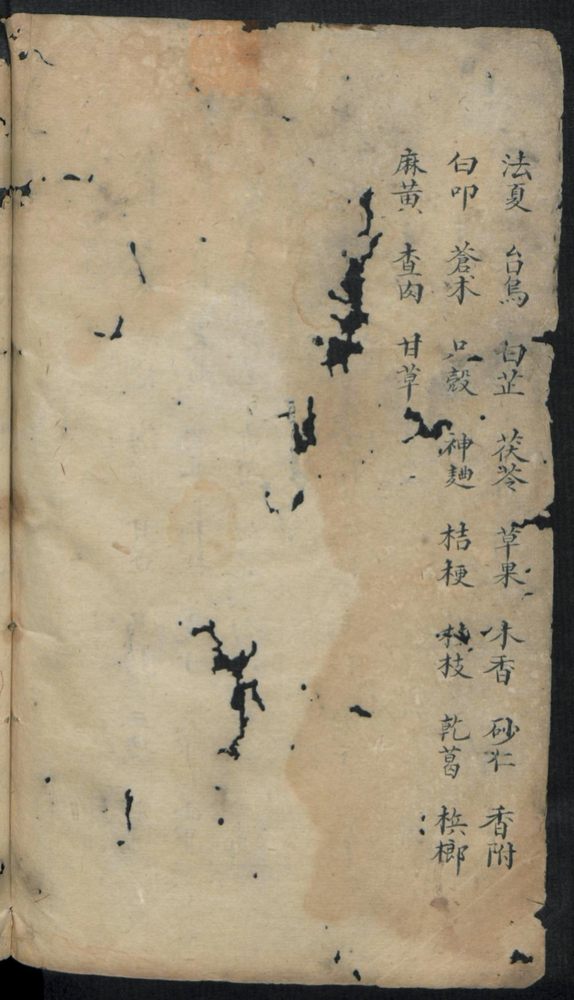 法夏 台烏 白芷 茯苓 草果 木香 砂仁 香附
白叩 蒼术 只殼 神麯 桔梗 枝 乾葛 梹榔
麻黃 查肉 甘草